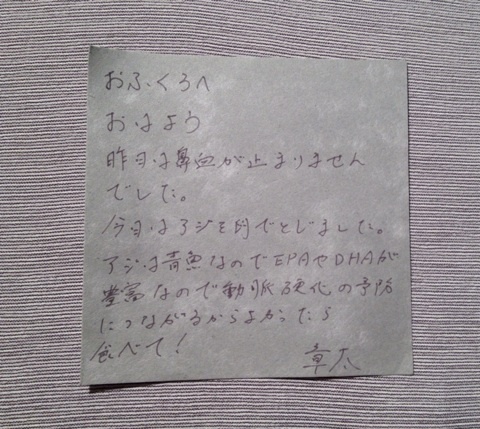 おふくろへ
おはよう
昨日は鼻血が止まりません
でした。
今日はアジを卵でとじました。
アジは青魚なのでEPAやDHAが
豊富なので動脈硬化の予防
につながるからよかったら
食べて!
章太